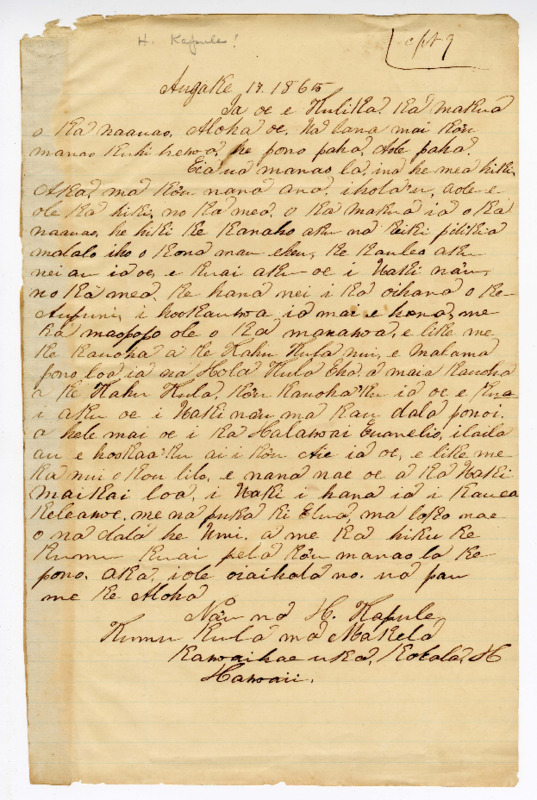 H. Kapule!
Augake 17. 1865
Ia oe e Hulika. Ka makua
o ka naauao, Aloha oe. Ua lana mai kou
manao kuhi hewa? he pono paha? Aole paha?
Eia na manao la, ina he mea hiki,
Aka, ma kou nana ana, ihola'u, aole e
ole ka hiki, no ka mea, o ka makua ia o ka
naauao, he hiki ke kanaho aku na keiki pilikia
malalo iho o kona mau eheu, ke kauleo aku
nei au ia oe, e kuai aku oe i Uaki nau,
no ka mea, ke hana nei i ka oihana o ke
Aupuni, i hookauwa ia mai e hana, me
ka maopopo ole o ka manawa, e like me
ke kauoha a ke Kahu Kula nui, e malama
pono loa ia na Hola Kula Eha. a maia kauoha
a ke Kahu Kula, kou kauoha'ku ia oe e kua
i aku oe i Uaki nou ma kau dala ponoi.
a hele mai oe i ka Halawai Euanelio, ilaila
au e hookaa'ku ai i kou aie ia oe, e like me
ka nui o kou lilo, e nana nae oe a ka Uaki
maikai loa, i Uaki i hana ia i kauea
keleawe. me na puka ki Elua, ma loko nae
o na dala he Umi. a me ka hiku ke
kumu kuai pela kou manao la ke
pono. aka, i ole oiaihola no. ua pau
me ke Aloha
Nau na H. Kapule,
Kumu Kula ma Makela
Kawaihae uka, Kohala, H
Hawaii.